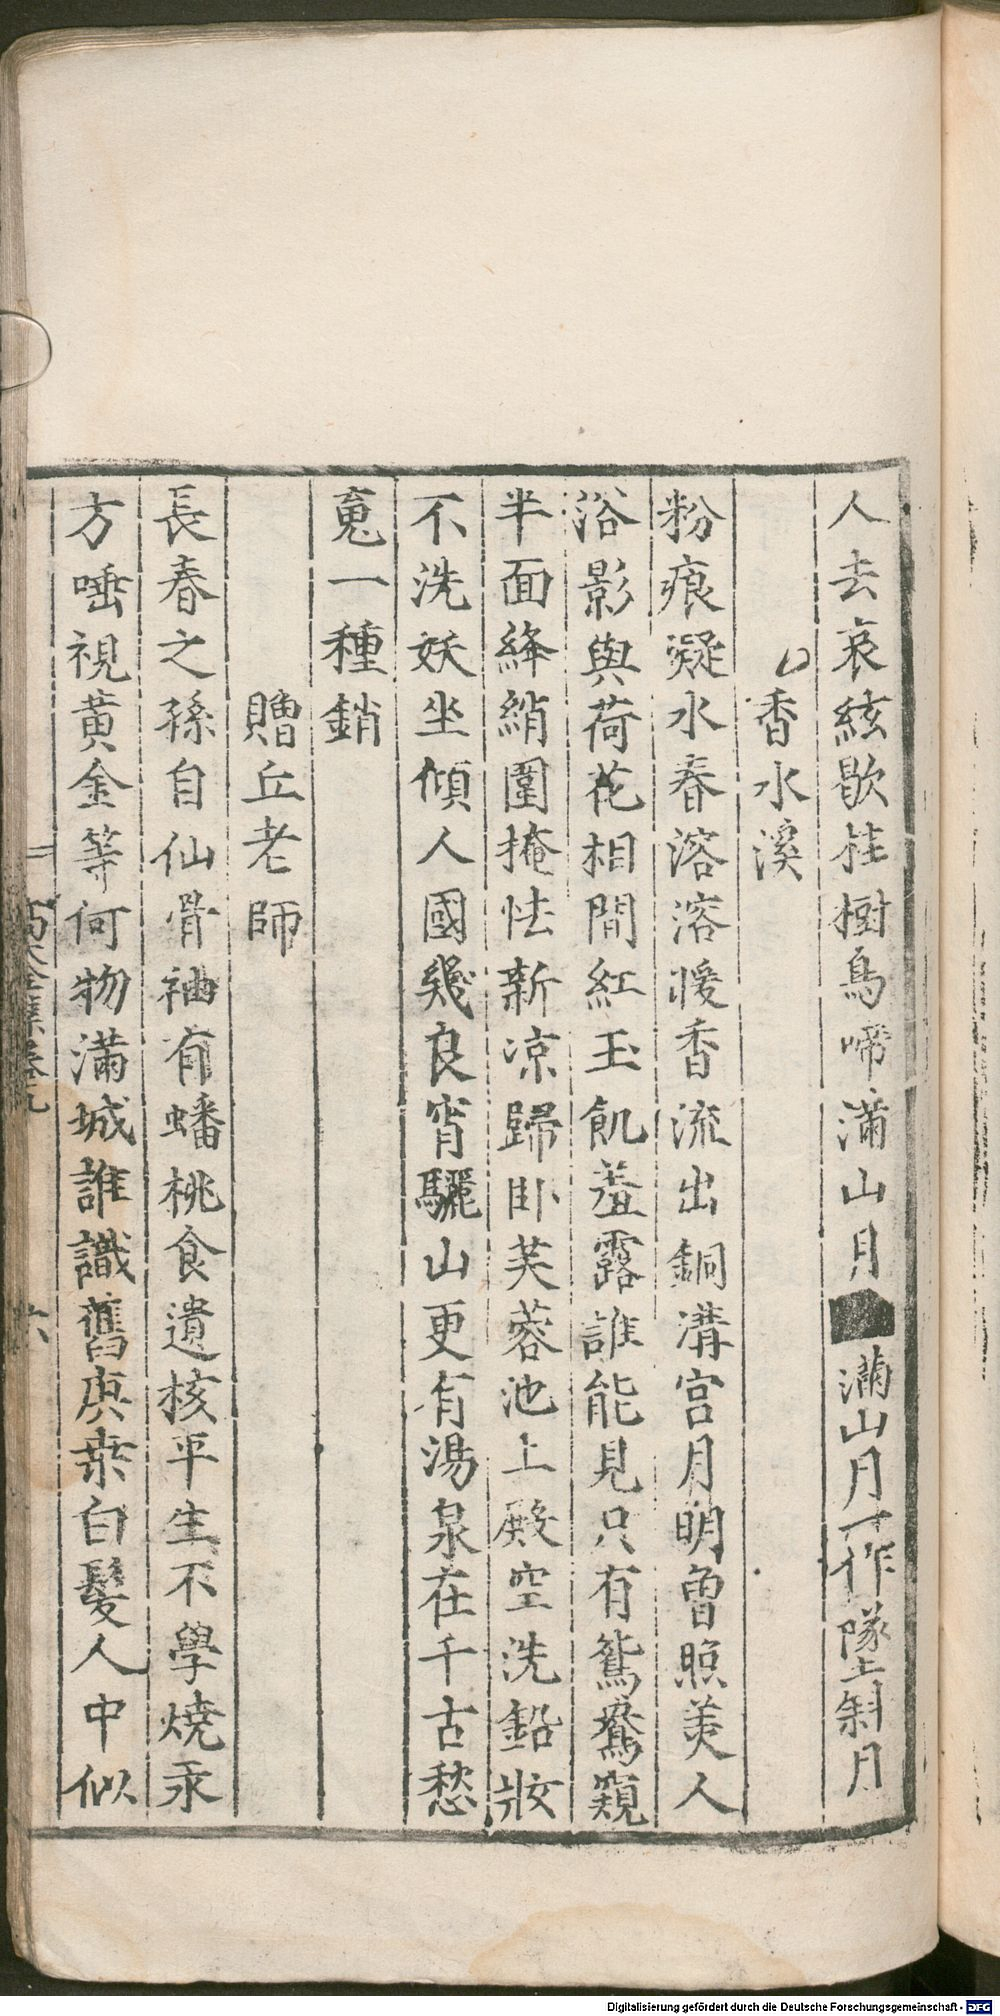 人去哀絃歇桂樹烏啼滿山月滿山月一作墜斜月
香水溪
粉痕凝水春溶溶暖香流出銅溝宮月明曾照美人
浴影與荷花相間紅玉飢羞露誰能見只有鴛鴦窺
半面絳綃圍掩怯新凉歸卧芙蓉池上殿空洗鉛妝
不洗妖坐傾人國幾良宵驪山更有湯泉在千古愁
䰟一種銷
贈丘老師
長春之孫自仙骨袖有蟠桃食遺核平生不學燒汞
方唾視黃金等何物滿城誰識舊庚桒白髮人中似
高太全集卷九
六
Digitalisierung gefördert durch die Deutsche Forschungsgemeinschaft - DFG